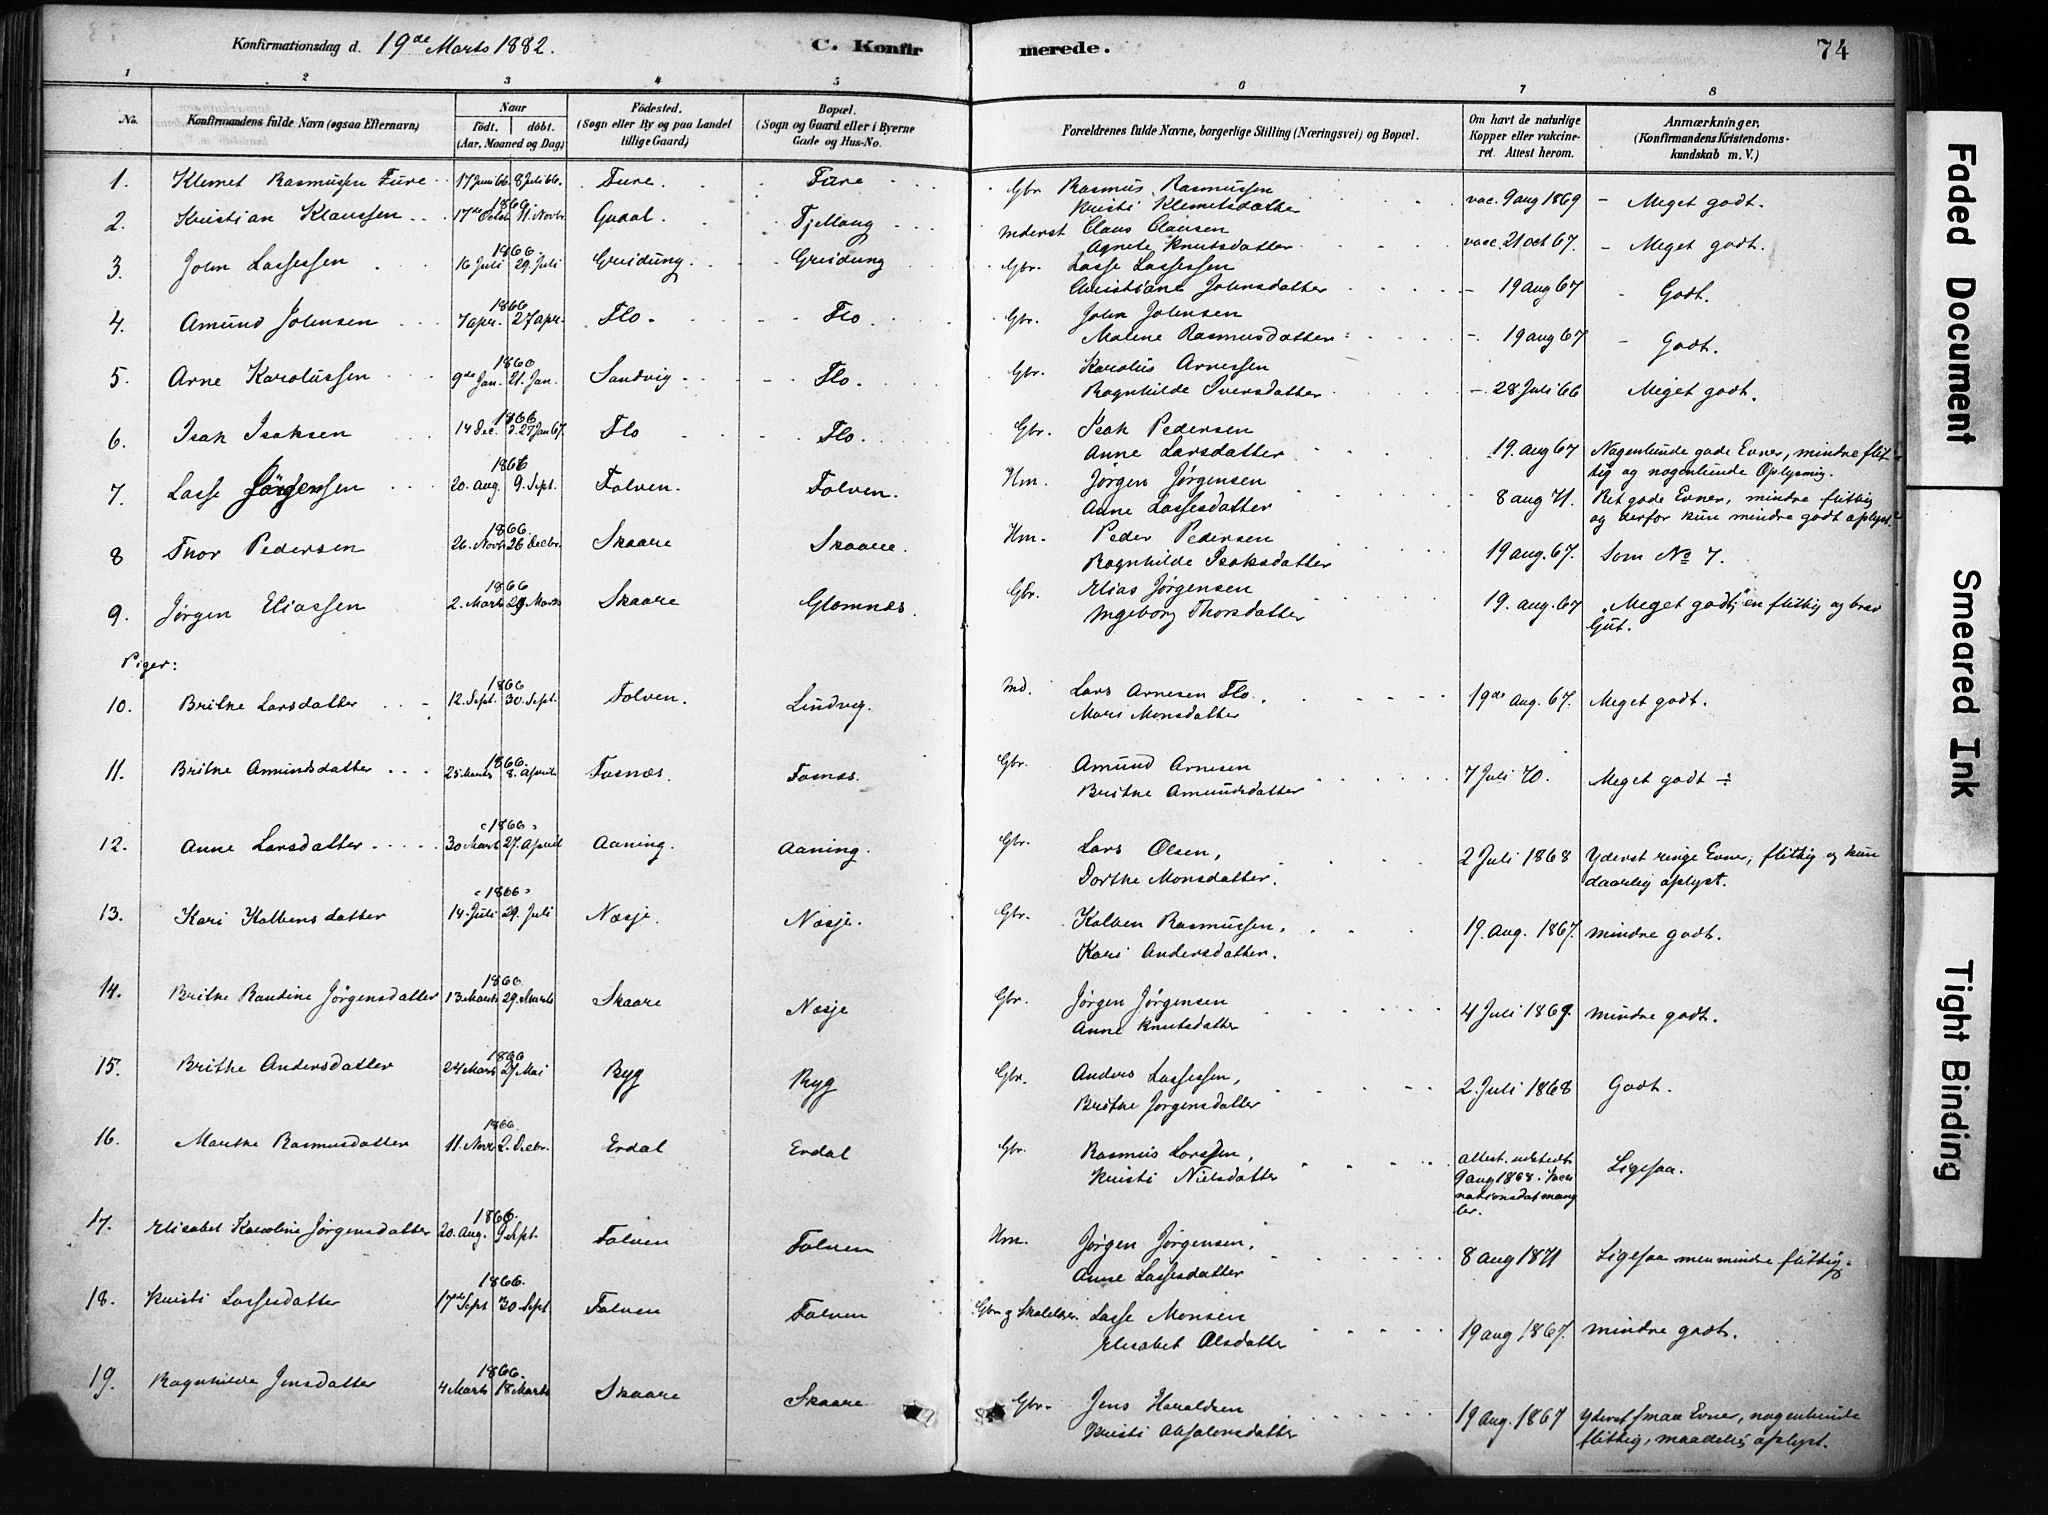 Konfirmationsdag d. 19de Marts 1882. C. Konfirmerede. 74
1 2 3 4 5 6 7 8
No. Konfirmandens fulde Navn (ogsaa Efternavn) Naar födt. döbt. (Aar, Maaned og Dag) Födested. (Sogn eller By og paa Landet tillige Gaard) Bopæl. (Sogn og Gaard eller i Byerne Gade og Hus-No. Forældrenes fulde Navne, borgerlige Stilling (Næringsvei) og Bopæl. Om havt de naturlige Kopper eller vakcineret. Attest herom. Anmærkninger, (Konfirmandens Kristendomskundskab m. V.)
1. Klemet Rasmussen Fure 17 Juni 66. 8 Juli 66. Fure. Fure Gbr. Rasmus Rasmussen vac. 9 aug 1869 Meget godt.
Kristi Klemetsdatter
2. Kristian Klaussen 1866 17de Octob 11. Novbr. Gudal Fjellang Inderst Claus Clausen vacc. 21 oct 67. Meget godt.
Agnete Knutsdatter
3. John Lassessen 1866 16 Juli 29. Juli Greidung Greidung Gbr. Lasse Lassessen - 19 aug 67 Godt.
Christiane Johnsdatter
4. Amund Johnsen 1866 7 apr. 27 apr. Flo Flo Gbr. John Johnsen - 19 aug 67 Godt.
Malene Rasmusdatter
5. Arne Karolussen 1866 9de Jan. 21. Jan. Sandvig Flo Gbr. Karolus Arnessen - 28 Juli 66 Meget godt.
Ragnhilde Iversdatter
6. Isak Isaksen 1866 14 Dec. 27 Jan 67. Flo Flo. Gbr. Isak Pedersen 19. aug 67 Nogenlunde gode Evner, mindre flit-
Anne Larsdatter tig og nogenlunde Oplysning.
7. Lasse Jörgensen 1866 20. aug 9. Sept. Folven. Folven. Hm. Jørgen Jørgensen 8 aug 71. Ret gode Evner, mindre flittig
Anne Lassesdatter og derfor kun mindre godt oplyst.
8 Thor Pedersen 1866 26. Novbr 26 Decbr. Skaare Skaare. Hm. Peder Pedersen 19 aug. 67. Som No 7.
Ragnhilde Isaksdatter
9. Jørgen Eliassen 1866 2. Marts 29 Marts Skaare Glomnes. Gbr. Elias Jørgensen 19. aug. 67 "Meget godt," en flittig og brav
Ingeborg Thorsdatter Gut.
Piger:
10. Brithe Larsdatter 1866 12. Sept. 30. Sept. Folven. Lindvig. Md. Lars Arnesen Flo. 19de Aug. 67. Meget godt.
Mari Monsdatter
11. Brithe Amundsdatter 1866. 25 Marts 8. April Fosnæs. Fosnæs. Gbr. Amund Arnesen 7 Juli 70. Meget godt ÷
Brithe Amundsdatter
12. Anne Larsdatter 1866 30 Mart 27. April Aaning. Aaning. Gbr. Lars Olsen, 2 Juli 1868 Yderst ringe Evner, flittig og kun
Dorthe Monsdatter. daarlig oplyst.
13. Kari Kolbensdatter 1866 14. Juli 29. Juli Næsje. Næsje. Gbr. Kolben Rasmussen, 19. Aug. 1867. Mindre godt.
Kari Andersdatter.
14. Brithe Raudine Jørgensdatter 1866 13 Marts 29. Marts Skaare Næsje Gbr. Jørgen Jørgensen 4 Juli 1869. Mindre godt.
Anne Knutsdatter
15. Brithe Andersdatter 1866 24 Marts 27 Mai Ryg Ryg Gbr. Anders Lassessen, 2. Juli 1868 Godt.
Brithe Jørgensdatter
16. Marthe Rasmusdatter 1866. 11. Novbr 2. Decbr. Erdal Erdal Gbr. Rasmus Larssen, attest. udstedt Ligesaa.
Kristi Nielsdatter 9 aug 1868. Vacci
nationsdat mang
ler.
17. Elisabet Karoline Jørgensdatter 1866 20. Aug. 9 Sept. Folven Folven Hm. Jørgen Jørgensen, 8 aug 1871 Ligesaa men mindre flittig.
Anne Lassesdatter
18. Kristi Lassesdatter 1866. 17de Sept 30 Sept Folven Folven Gbr. og Skolelær. Lasse Monsen 19 aug 1867. Mindre godt.
Elisabet Olsdatter
19. Ragnhilde Jensdatter 1866. 4 Marts 18 Marts Skaare Skaare Gbr. Jens Haraldsen 19 Aug. 1867 Yderst smaa Evner, nogenlunde
Kristi Absalonsdatter flittig, maadelig oplyst.
Faded Document
Smeared Ink
Tight Binding